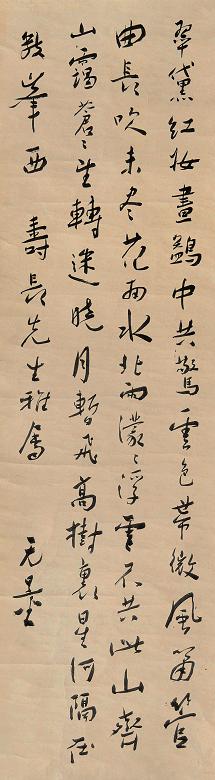 翠黛红妆画鹢中共惊云色带微风箫管
曲长吹未尽花南水北雨濛〻浮云不共此山齐
山霭苍〻望转迷晓月暂飞高树里星河隔在
数峯西 寿长先生雅属 无量